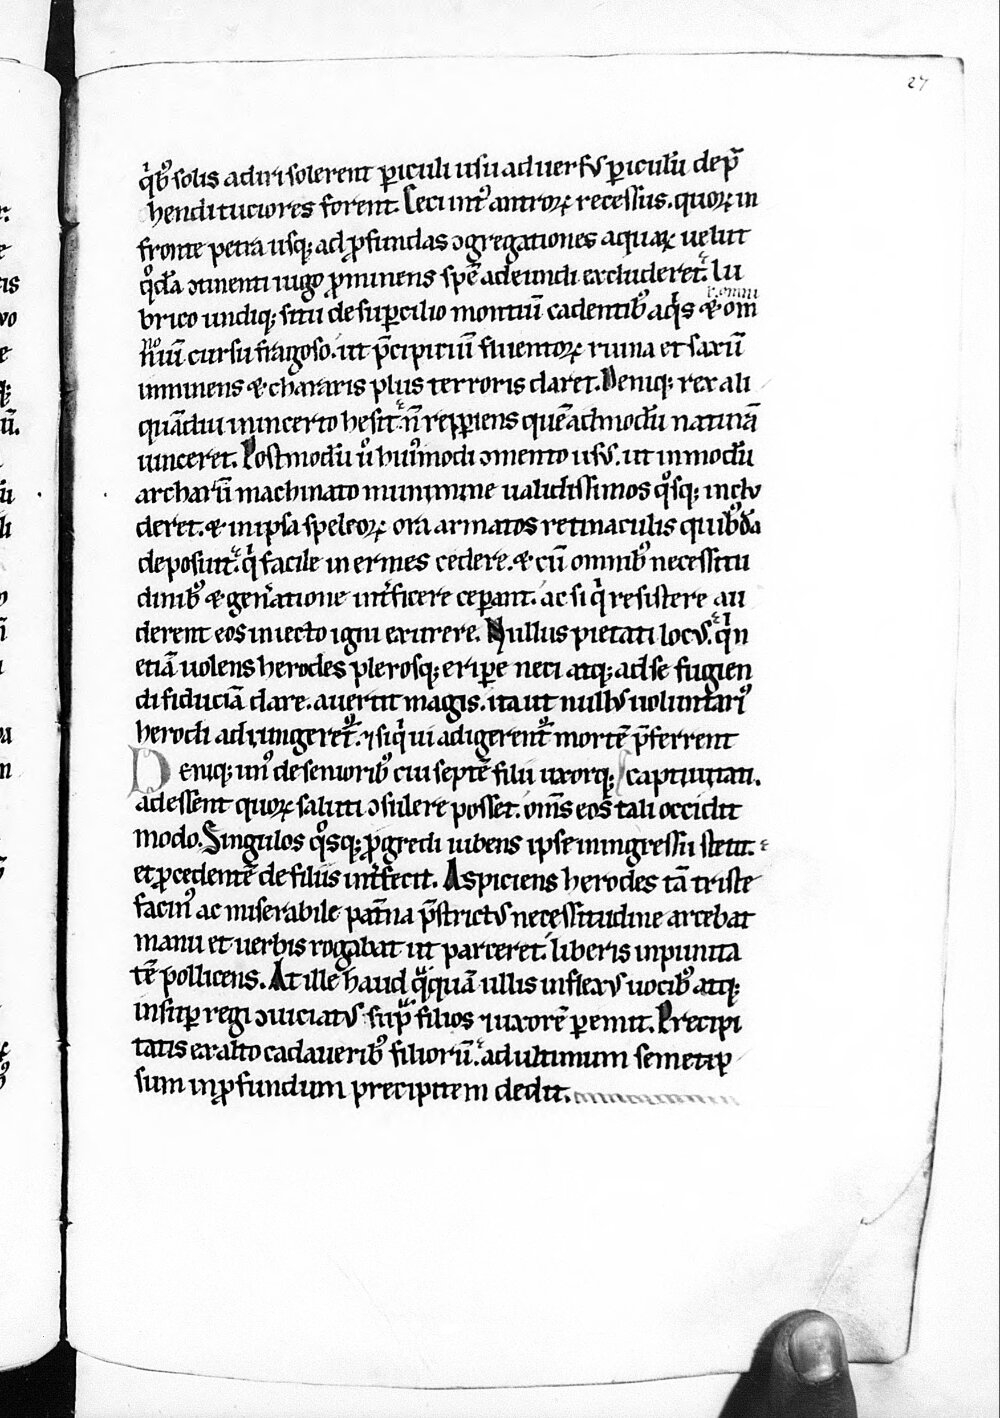 27
q̇bꝰ solis aduri solerent ꝑiculi usu aduersꝰ ꝑiculū dep̄
henditutiores forent. Seci intꝰ antroꝝ recessus. quoꝝ in
fronte petra usq; ad ꝓfundas ↄgregationes aquaꝝ uelut
q̊dā ↄtinenti iugo ꝓminens spē adeundi excluderet. lu
brico undiq; situ desuꝑcilio montiū cadentibꝰ aq̇s ⁊ om
niū cursu fragoso. ut p̄cipitiū fluentoꝝ ruina et saxū
imminens ⁊ chararis plus terroris daret. Deniq; rex ali
quādiu inincerto hesit. n̄ repꝑiens quēadmodū naturā
uinceret. Postmodū ů huꝰmodi ↄmento usꝰ. ut inmodū
archarū machinato munimine ualidissimos q̊sq; inclu
deret. ⁊ inipsa speleoꝝ ora armatos retinaculis quibꝰdā
deposuit. q̇ facile inermes cedere. ⁊ cū omnibꝰ necessitu
dinibꝰ ⁊ gen̄atione int̄ficere ceꝑant. ac si q̇ resistere au
derent eos iniecto igni exurere. Nullus pietati locꝰ. q̇n
etiā uolens herodes plerosq; eriꝑe neci atq; adse fugien
di fiduciā dare. auertit magis. ita ut nullꝰ uoluntariꝰ
herodi adiungeret᷑. ⁊ siq̇ ui adigerent᷑ mortē p̄ferrent
Deniq; unꝰ de senioribꝰ cui septē filii uxorq; captiuitati.
adessent quoꝝ saluti ↄsulere posset. om̄s eos tali occidit
modo. Singulos q̊sq; ꝓgredi iubens ipse iningressu stetit.
et ꝓcedentē de filiis int̄fecit. Aspiciens herodes tā triste
facinꝰ ac miserabile pat̄na p̄strictꝰ necessitudine arcebat
manu et uerbis rogabat ut parceret. liberis inpunita
tē pollicens. At ille haud q̃quā ullis inflexꝰ uocibꝰ atq;
insuꝑ regi ↄuiciatꝰ suꝑ filios ⁊ uxorē ꝑemit. Precipi
tatis exalto cadaueribꝰ filiorū. adultimum semetip
sum inꝓfundum precipitem dedit.